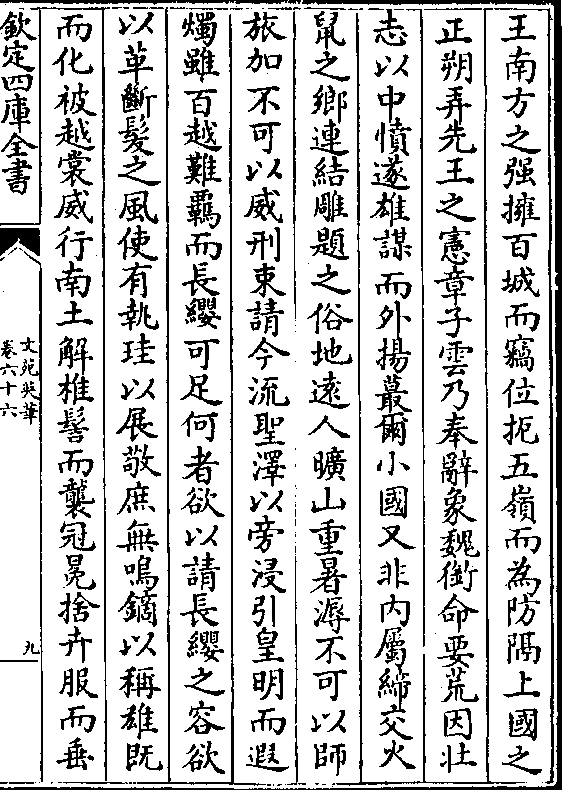 王南方之强擁百城而竊位扼五嶺而為防隔上國之
正朔弄先王之憲章子雲乃奉辭象魏銜命要荒因壯
志以中憤遂雄謀而外揚蕞爾小國又非内屬締交火
䑕之鄉連結雕題之俗地逺人曠山重暑溽不可以師
旅加不可以威刑束請今流聖澤以旁浸引皇明而遐
燭雖百越難羈而長纓可足何者欲以請長纓之容欲
以革斷髮之風使有執珪以展敬庶無鳴鏑以稱雄既
而化被越裳威行南土解椎髻而襲冠冕捨卉服而垂
欽定四庫全書
文苑英華
卷六十六
九